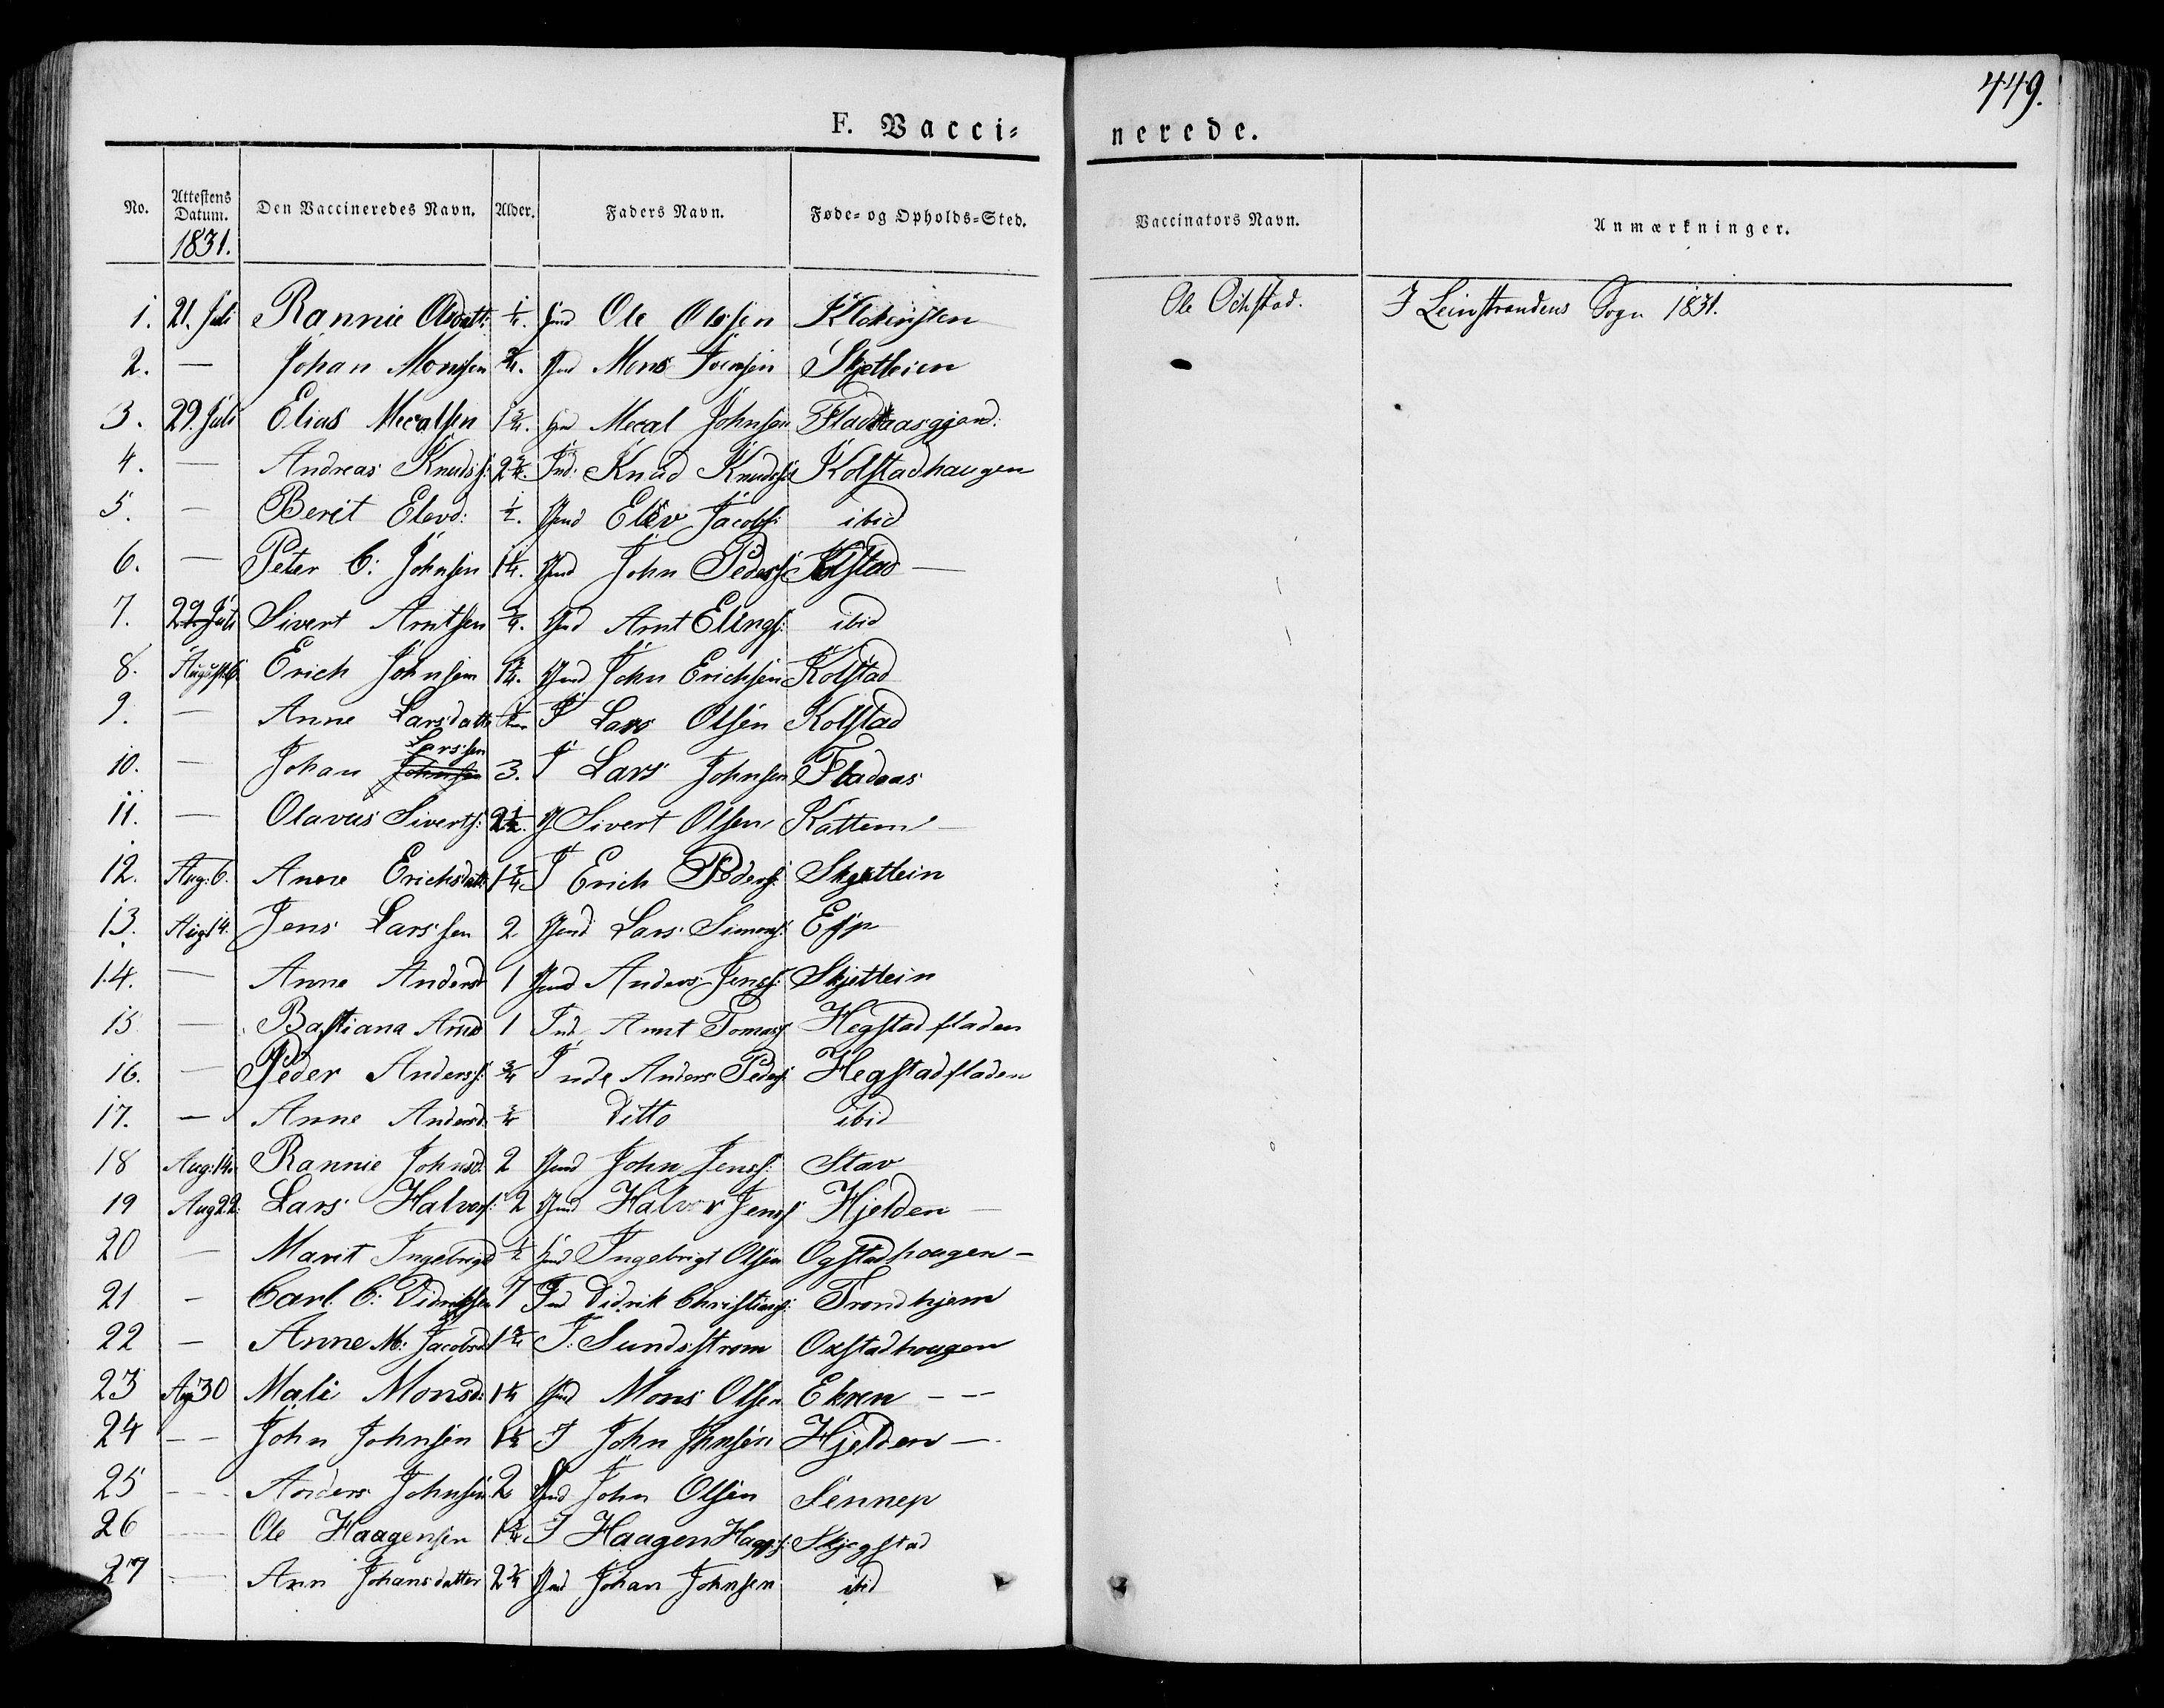 449.
F. Vacci= nerede.
No. Attestens Datum. Den Vaccineredes Navn. Alder. Faders Navn. Føde= og Opholds=Sted. Vaccinators Navn. Anmærkninger.
1831.
1. 21. Juli Rannie Olsdatt: Ole Olsen Ole I Leinstrandens Sogn 1831.
2. — Johan Monsen Mons Skjetlein
3. 29. Juli Elias Mecalsen Mecal Johnsen
4. — Andreas Knuds: 2 Ind: Knud Knuds: Kolstadhaugen
5. — Berit Elevd: ½. Ind Elev Jacobs: ibid
6. — Peter C: Johnsen 1¼. Ind John Peders: Kolstad —
7. 29. Juli Sivert Arntsen ¾. Ind Arnt Elings: ibid
8. August 6 Erich Johnsen Ind John Erichsen Kolstad
9. — Anne Larsdatt: I Lars Olsen Kolstad
Larssen
10. — Johan Johnsen 3. I Lars Johnsen Fladaas
11. — Olavus Siverts: 2½. I Sivert Olsen Kattem —
12. Aug: 6. Anne Erichsdatt: 1¾. I Erich Peders: Skjetlein
13. Aug 14. Jens Larssen 2 Ind Lars Simons: Esp
14. — Anne Andersd 1 Ind Anders Jens: Skjetlein
15 — Bastiana Arnd 1 Ind Arnt Tomas: Hegstadfladen
16. — Peder Anders: ¾ Inde Anders Peders: Hegstadfladen
17. — Anne Andersd: ¾ Ditto ibid
18 Aug: 14. Rannie Johnsd: 2 Ind John Jens: Stav
19 Aug 22. Lars Halvors: 2 Ind Halvor Jens: Hjelden —
20 — Marit Ingebrigd ½ Ind Ingebrigt Olsen Ogstadhougen —
21 — Carl C: Didriksen 7 Ind Didrik Christians: Trondhjem
22 — Anne M: Jacobsd 1¾ I: Sundsstrøm Oxstadhougen
23 Ag 30 Mali Monsd: 1¼ Ind Mons Olsen Ekren — —
24 — — John Johnsen 1½ I John Johnsen Hjelden —
25 — — Anders Johnsen 2 Ind John Olsen Sennep
26 — Ole Haagensen 1¾ I Haagen Skjegstad
27 — Ann Johansdatter 2¾ Ind Johan Johnsen ibid